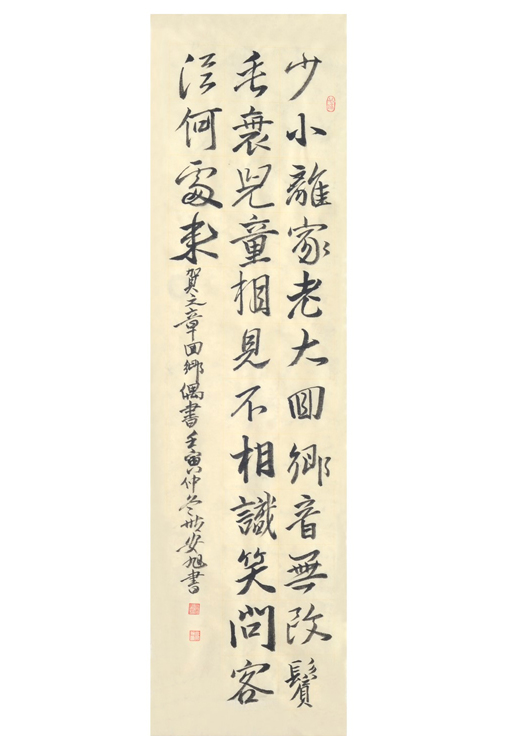 少小離家老大回鄉音無改鬢
毛衰兒童相見不相識笑問客
從何處來
賀之章回鄉偶書壬寅仲冬安旭書